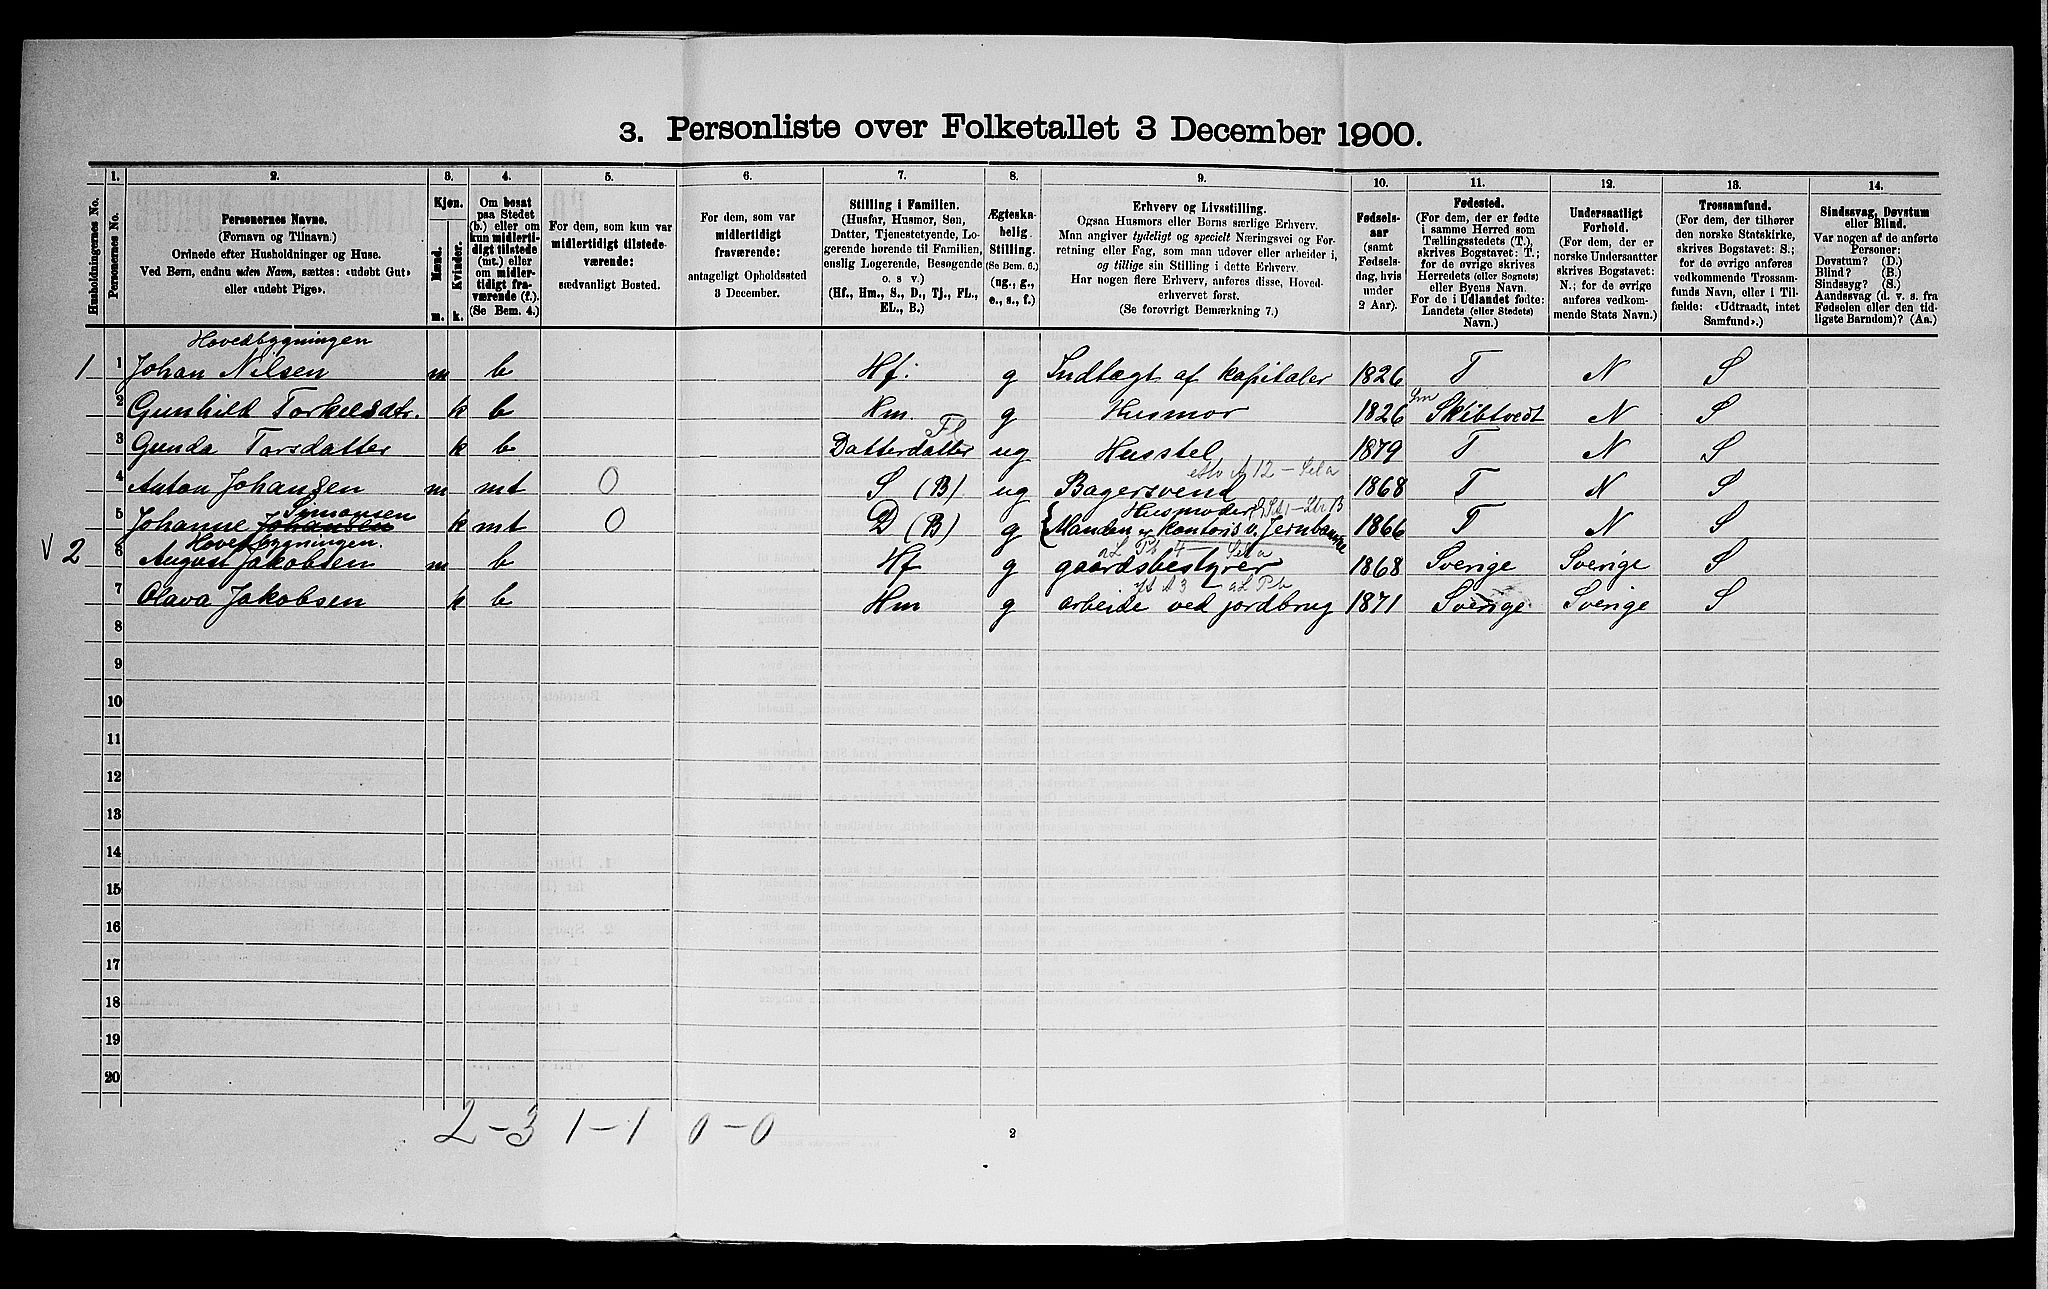 3. Personliste over Folketallet 3 December 1900.
Husholdningernes No.
1.
Personernes No.
2.
Personernes Navne.
(Fornavn og Tilnavn.)
Ordnede efter Husholdninger og Huse.
Ved Børn, endnu uden Navn, sættes: «udøbt Gut»
eller «udøbt Pige».
3.
Kjøn.
Mænd.
Kvinder.
m. k.
4.
Om bosat
paa Stedet
(b.) eller om
kun midlerti-
digt tilstede
(mt.) eller
om midler-
tidigt fra-
værende (f.).
(Se Bem. 4.)
5.
For dem, som kun var
midlertidigt tilstede-
værende:
sædvanligt Bosted.
6.
For dem, som var
midlertidigt
fraværende:
antageligt Opholdssted
3 December.
7.
Stilling i Familien.
(Husfar, Husmor, Søn,
Datter, Tjenestetyende, Lo-
gerende hørende til Familien,
enslig Logerende, Besøgende
o. s. v.)
(Hf., Hm., S., D., Tj., FL.,
EL., B.)
8.
Ægteska-
belig
Stilling.
(Se Bem. 6.)
(ug., g.,
e., s., f.)
9.
Erhverv og Livsstilling.
Ogsaa Husmors eller Børns særlige Erhverv.
Man angiver tydeligt og specielt Næringsvei og For-
retning eller Fag, som man udøver eller arbeider i,
og tillige sin Stilling i dette Erhverv.
Har nogen flere Erhverv, anføres disse, Hoved-
erhvervet først.
(Se forøvrigt Bemærkning 7.)
10.
Fødsels-
aar
(samt
Fødsels-
dag, hvis
under
2 Aar).
11.
Fødested.
(For dem, der er fødte
i samme Herred som
Tællingsstedets (T.),
skrives Bogstavet: T.;
for de øvrige skrives
Herredets (eller Sognets)
eller Byens Navn.
For de i Udlandet fødte:
Landets (eller Stedets)
Navn.)
12.
Undersaatligt
Forhold.
(For dem, der er
norske Undersaatter
skrives Bogstavet:
N.; for de øvrige
anføres vedkom-
mende Stats Navn.)
13.
Trossamfund.
(For dem, der tilhører
den norske Statskirke,
skrives Bogstavet: S.;
for de øvrige anføres
vedkommende Trossam-
funds Navn, eller i Til-
fælde: «Udtraadt, intet
Samfund».)
14.
Sindssvag, Døvstum
eller Blind.
Var nogen af de anførte
Personer:
Døvstum? (D.)
Blind? (B.)
Sindssyg? (S.)
Aandssvag (d. v. s. fra
Fødselen eller den tid-
ligste Barndom)? (Aa.)
Hovedbygningen
1 1 Johan Nilsen m b Hf. g Indtægt af kapitaler 1826 T N S
2 Gunhild Torkelsdtr. k b Hm. g Husmor 1826 Sm Skibtvedt N S
3 Gunda Torsdatter k b Datterdatter Fl ug Husstel 1879 T N S
4 Anton Johansen m mt 0 S (B) ug Bagersvend 1868 T N S
Simonsen Husmoder
5 Johanne Johansen k mt 0 D (B) g {Manden er kontorist v. Jernbane 1866 T N S
Hovedbygningen.
v 2 6 August Jakobsen m b Hf g gaardsbestyrer 1868 Sverige Sverige S
7 Olava Jakobsen k b Hm g arbeide ved jordbrug 1871 Sverige Sverige S
8
9
10
11
12
13
14
15
16
17
18
19
20
2-3 1-1 0-0
2